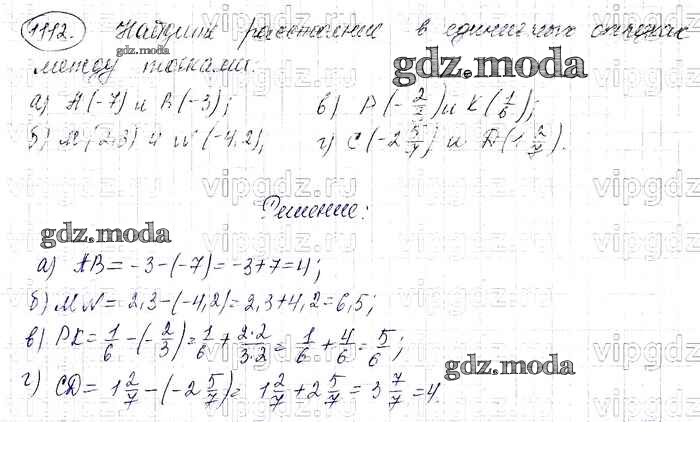 1112. Найдите расстояние в единичных отрезках
между точками:
а) A(-7) и B(-3); в) P(-2/3) и K(1/6);
б) M(2,3) и N(-4,2); г) C(-2 5/7) и D(1 2/7).
Решение:
а) AB = -3-(-7) = -3+7 = 4;
б) MN = 2,3-(-4,2) = 2,3+4,2 = 6,5;
в) PK = 1/6 - (-2/3) = 1/6 + 2·2/3·2 = 1/6 + 4/6 = 5/6;
г) CD = 1 2/7 - (-2 5/7) = 1 2/7 + 2 5/7 = 3 7/7 = 4.
gdz.moda
gdz.moda
gdz.moda
gdz.moda
vipgdz.ru